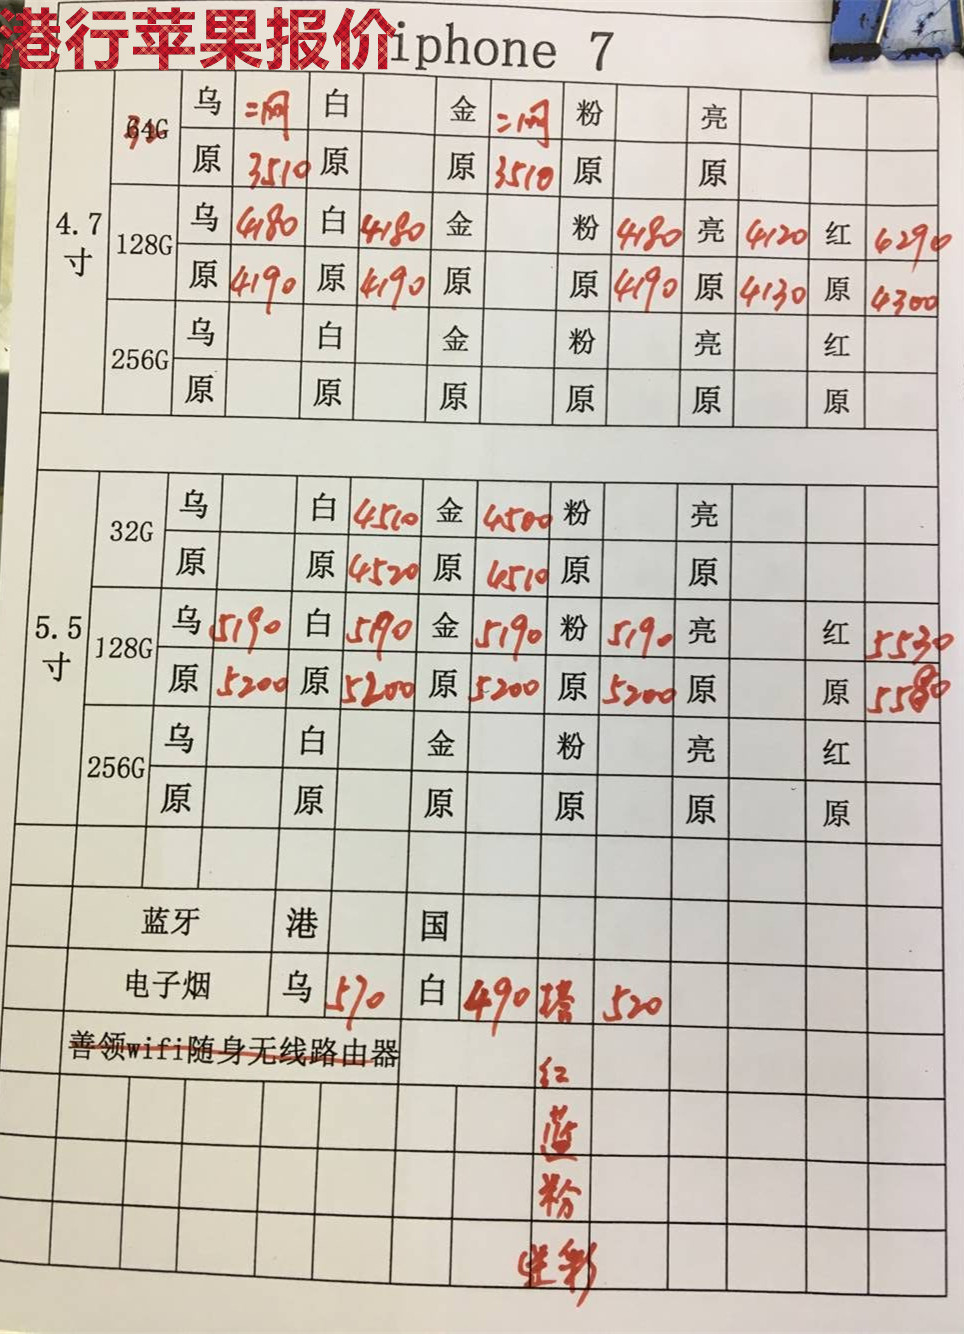 港行苹果报价
iphone 7
4.7寸
64G 乌 二网 白 金 二网 粉 亮
原 3510 原 原 3510 原 原
128G 乌 4180 白 4180 金 粉 4180 亮 4120 红 4290
原 4190 原 4190 原 原 4190 原 4130 原 4300
256G 乌 白 金 粉 亮 红
原 原 原 原 原 原
5.5寸
32G 乌 白 4510 金 4500 粉 亮
原 原 4520 原 4510 原 原
128G 乌 5190 白 5190 金 5190 粉 5190 亮 红 5530
原 5200 原 5200 原 5200 原 5200 原 原
256G 乌 白 金 粉 亮 红
原 原 原 原 原 原
蓝牙 港 国
电子烟 乌 570 白 490 塔 520
善领wifi随身无线路由器 红
蓝
粉